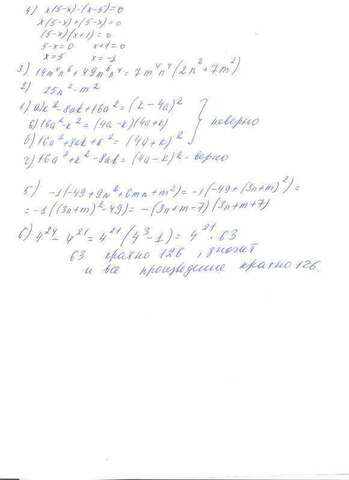 4) x(5-x)-(x-5)=0
x(5-x)+(5-x)=0
(5-x)(x+1)=0
5-x=0 x+1=0
x=5 x=-1
3) 14m⁴n⁶+49m⁶n⁴=7m⁴n⁴(2n²+7m²)
2) 25n²-m²
1) a)k²-8ak+16a²=(k-4a)²
в)16a²-k²=(4a-k)(4a+k) неверно
б)16a²+8ak+k²=(4a+k)²
г)16a²+k²-8ak=(4a-k)²-верно
5) -1(-49+9n²+6mn+m²)=-1(-49+(3n+m)²)=
=-1((3n+m)²-49)=-(3n+m-7)(3n+m+7)
6) 4²⁴-4²¹=4²¹(4³-1)=4²¹·63
63 кратно 126, значит
и все произведение кратно 126.